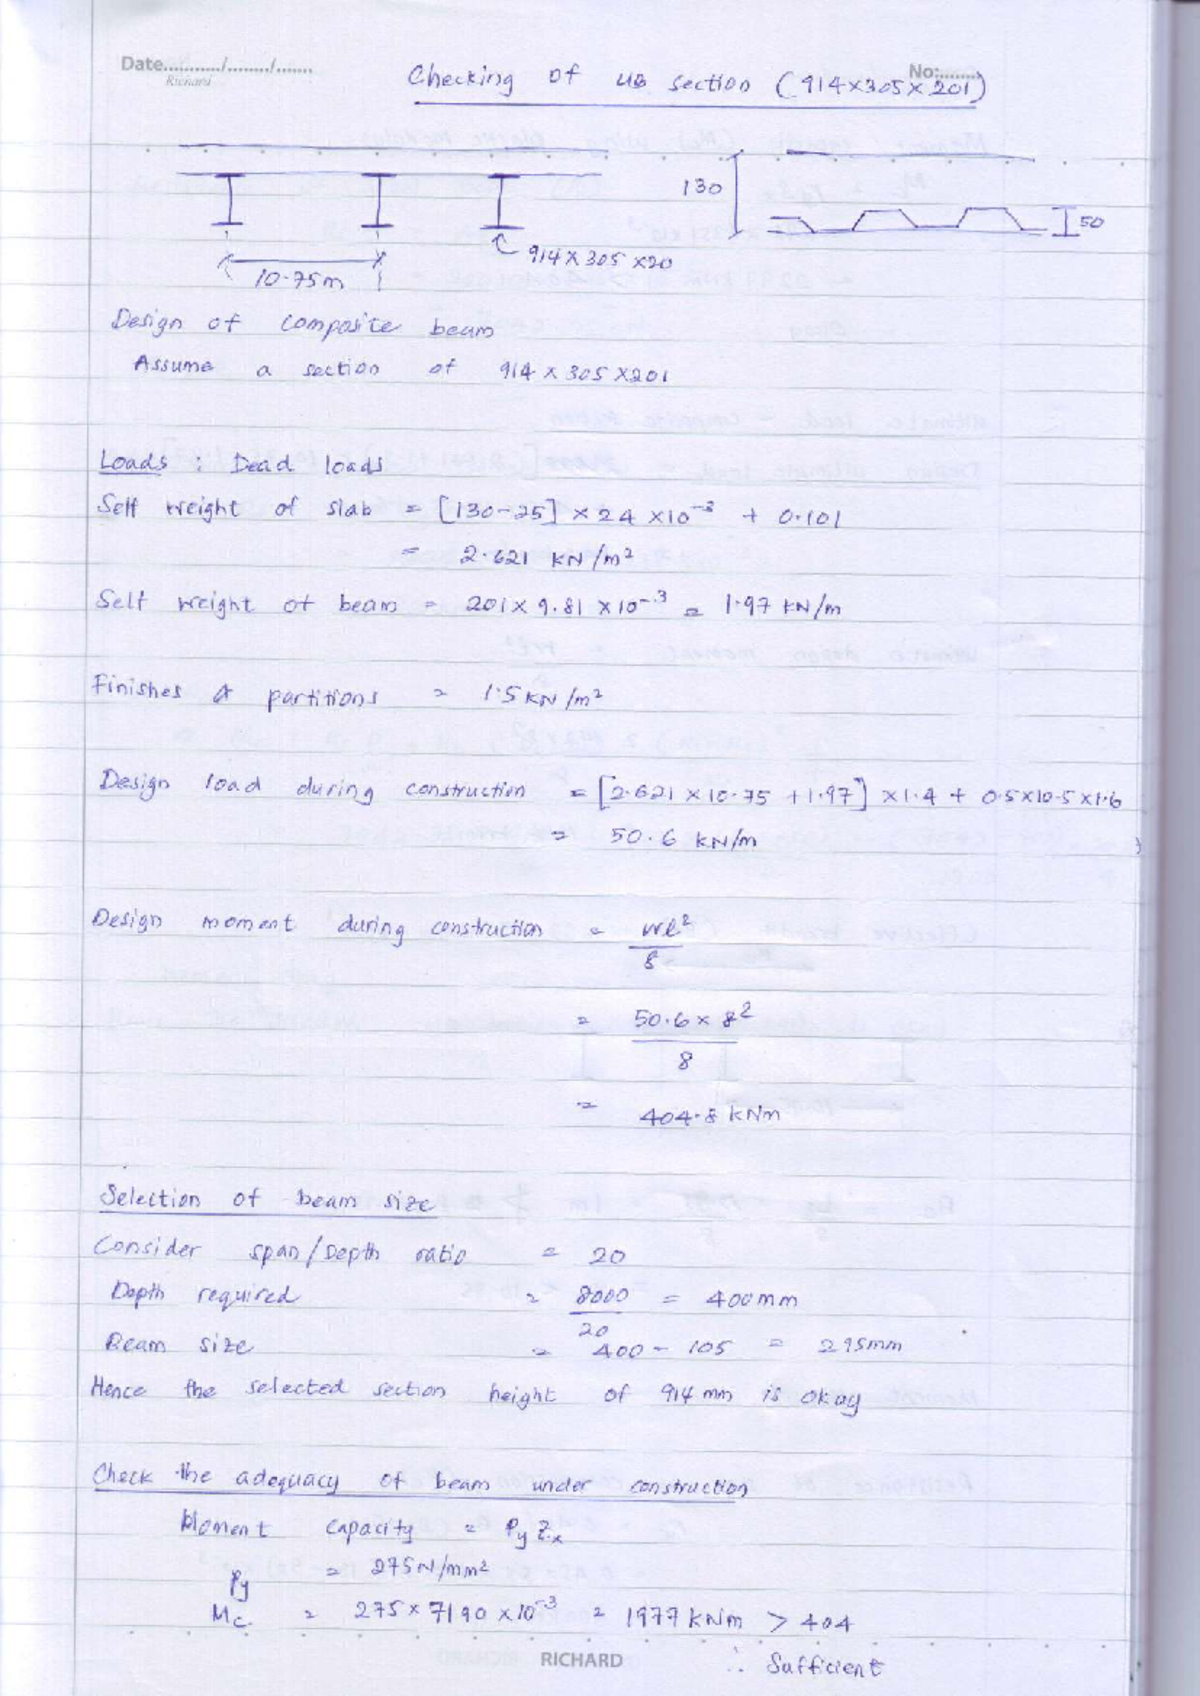 Date.........../......../.......
Richard
No:........
Checking of UB section (914x305x201)
130
50
914 x 305 x20
10.75m
Design of composite beam
Assume a section of 914 x 305 x201
Loads : Dead loads
Self weight of slab = [130-25] x 24 x10⁻³ + 0.101
= 2.621 KN/m²
Self weight of beam = 201 x 9.81 x10⁻³ = 1.97 KN/m
Finishes & partitions = 1.5 KN/m²
Design load during construction = [2.621 x 10.75 +1.97] x1.4 + 0.5x10.5x1.6
= 50.6 KN/m
Design moment during construction = wl²
8
= 50.6 x 8²
8
= 404.8 KNm
Selection of beam size
Consider span/Depth ratio = 20
Depth required = 8000 = 400mm
20
Beam size = 400 - 105 = 295mm
Hence the selected section height of 914 mm is okay
Check the adequacy of beam under construction
Moment capacity = Py Zx
Py = 275N/mm²
Mc = 275 x 7190 x10⁻³ = 1977 KNm > 404
RICHARD
∴ Sufficient